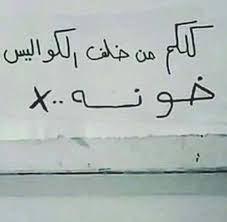 كلكم من خلف الكواليس
خونــه ..x